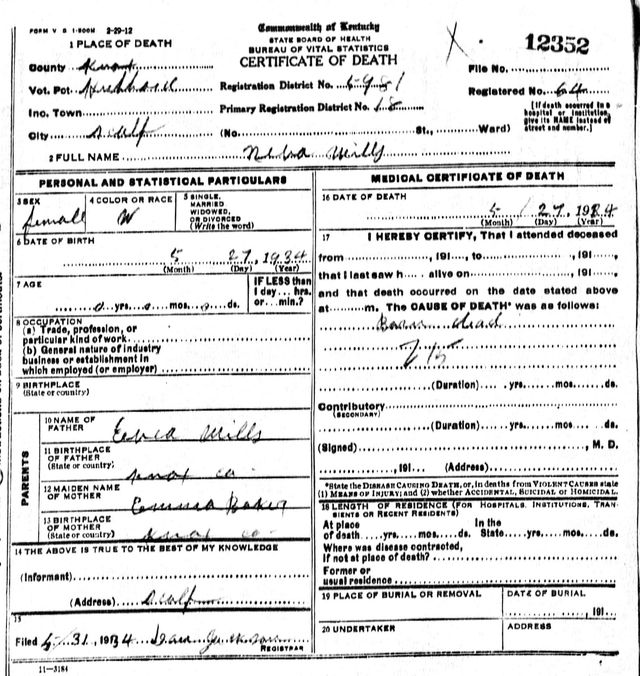 FORM V S 1-500M 2-29-12
Commonwealth of Kentucky
STATE BOARD OF HEALTH
BUREAU OF VITAL STATISTICS
CERTIFICATE OF DEATH
X. 12352
1 PLACE OF DEATH
County Knox
File No.
Vot. Pct
Registration District No. 5981
Registered No. 64
Inc. Town
Primary Registration District No. 18
[If death occurred in a hospital or institution, give its NAME instead of street and number.]
City Scalf (No. St., Ward)
2 FULL NAME Mills
PERSONAL AND STATISTICAL PARTICULARS
3 SEX female
4 COLOR OR RACE W
5 SINGLE, MARRIED WIDOWED, OR DIVORCED (Write the word)
6 DATE OF BIRTH
5 27, 1934
(Month) (Day) (Year)
7 AGE
0 yrs. 0 mos. 0 ds.
IF LESS than 1 day... hrs. or... min.?
8 OCCUPATION
(a) Trade, profession, or
particular kind of work
(b) General nature of industry
business or establishment in
which employed (or employer)
9 BIRTHPLACE
(State or country)
PARENTS
10 NAME OF FATHER Mills
11 BIRTHPLACE OF FATHER (State or country) Knox Co
12 MAIDEN NAME OF MOTHER Emma Baker
13 BIRTHPLACE OF MOTHER (State or country) Knox Co
14 THE ABOVE IS TRUE TO THE BEST OF MY KNOWLEDGE
(Informant)
(Address) Scalf
15
Filed 5-31, 1934
REGISTRAR
11-3184
MEDICAL CERTIFICATE OF DEATH
16 DATE OF DEATH
5 27, 1934
(Month) (Day) (Year)
17 I HEREBY CERTIFY, That I attended deceased
from , 191 , to , 191 ,
that I last saw h alive on , 191 ,
and that death occurred on the date stated above
at m. The CAUSE OF DEATH* was as follows:
Born dead
(Duration) yrs. mos. ds.
Contributory
(SECONDARY)
(Duration) yrs. mos. ds.
(Signed) , M. D.
, 191 (Address)
*State the DISEASE CAUSING DEATH, or, in deaths from VIOLENT CAUSES state
(1) MEANS OF INJURY; and (2) whether ACCIDENTAL, SUICIDAL or HOMICIDAL.
18 LENGTH OF RESIDENCE (FOR HOSPITALS, INSTITUTIONS, TRANSIENTS OR RECENT RESIDENTS)
At place of death yrs. mos. ds. In the State yrs. mos. ds.
Where was disease contracted,
If not at place of death?
Former or
usual residence
19 PLACE OF BURIAL OR REMOVAL
DATE OF BURIAL
, 191
20 UNDERTAKER
ADDRESS